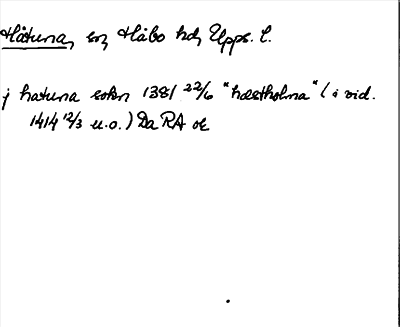 Håtuna, sn, Håbo hd, Upps. l.
j hatuna sokn 1381 22/6 "hæstholma" (i vid.
1414 12/3 u.o.) Da RA or